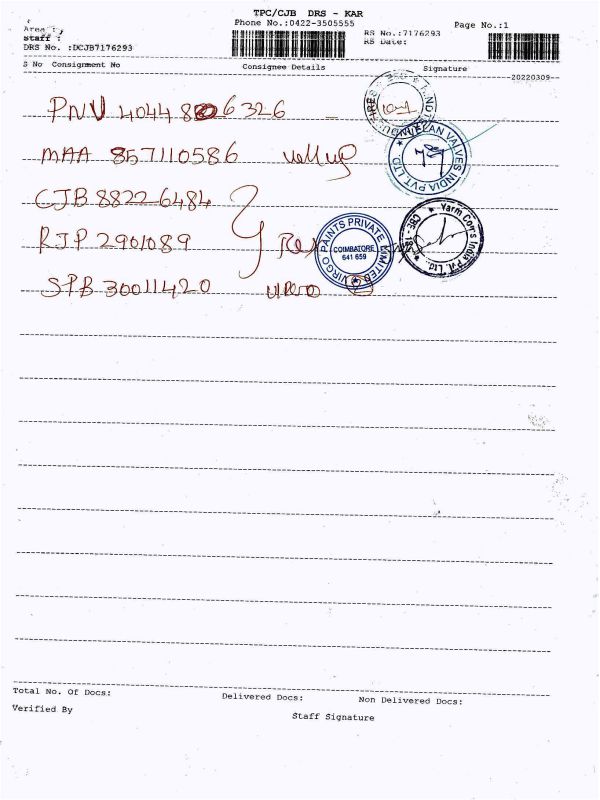 TPC/CJB DRS - KAR
Phone No.:0422-3505555
Page No.:1
Area :
staff :
DRS No. :DCJB7176293
RS No.:7176293
RS Date:
S No Consignment No Consignee Details Signature
20220309
PNV 40448806326
MAA 857110586
CJB 88226484
RJP 2901089
SPB 30011420
VELAN VALVES INDIA PVT. LTD
VIRGO PAINTS PRIVATE LIMITED
COIMBATORE
641 659
Yarm Com's India Pvt. Ltd.
CBE - 18
Total No. Of Docs: Delivered Docs: Non Delivered Docs:
Verified By
Staff Signature